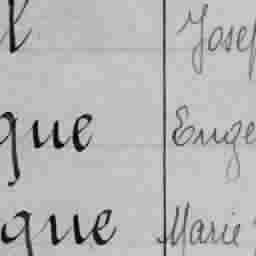 l Josep
que Enge
que Marie